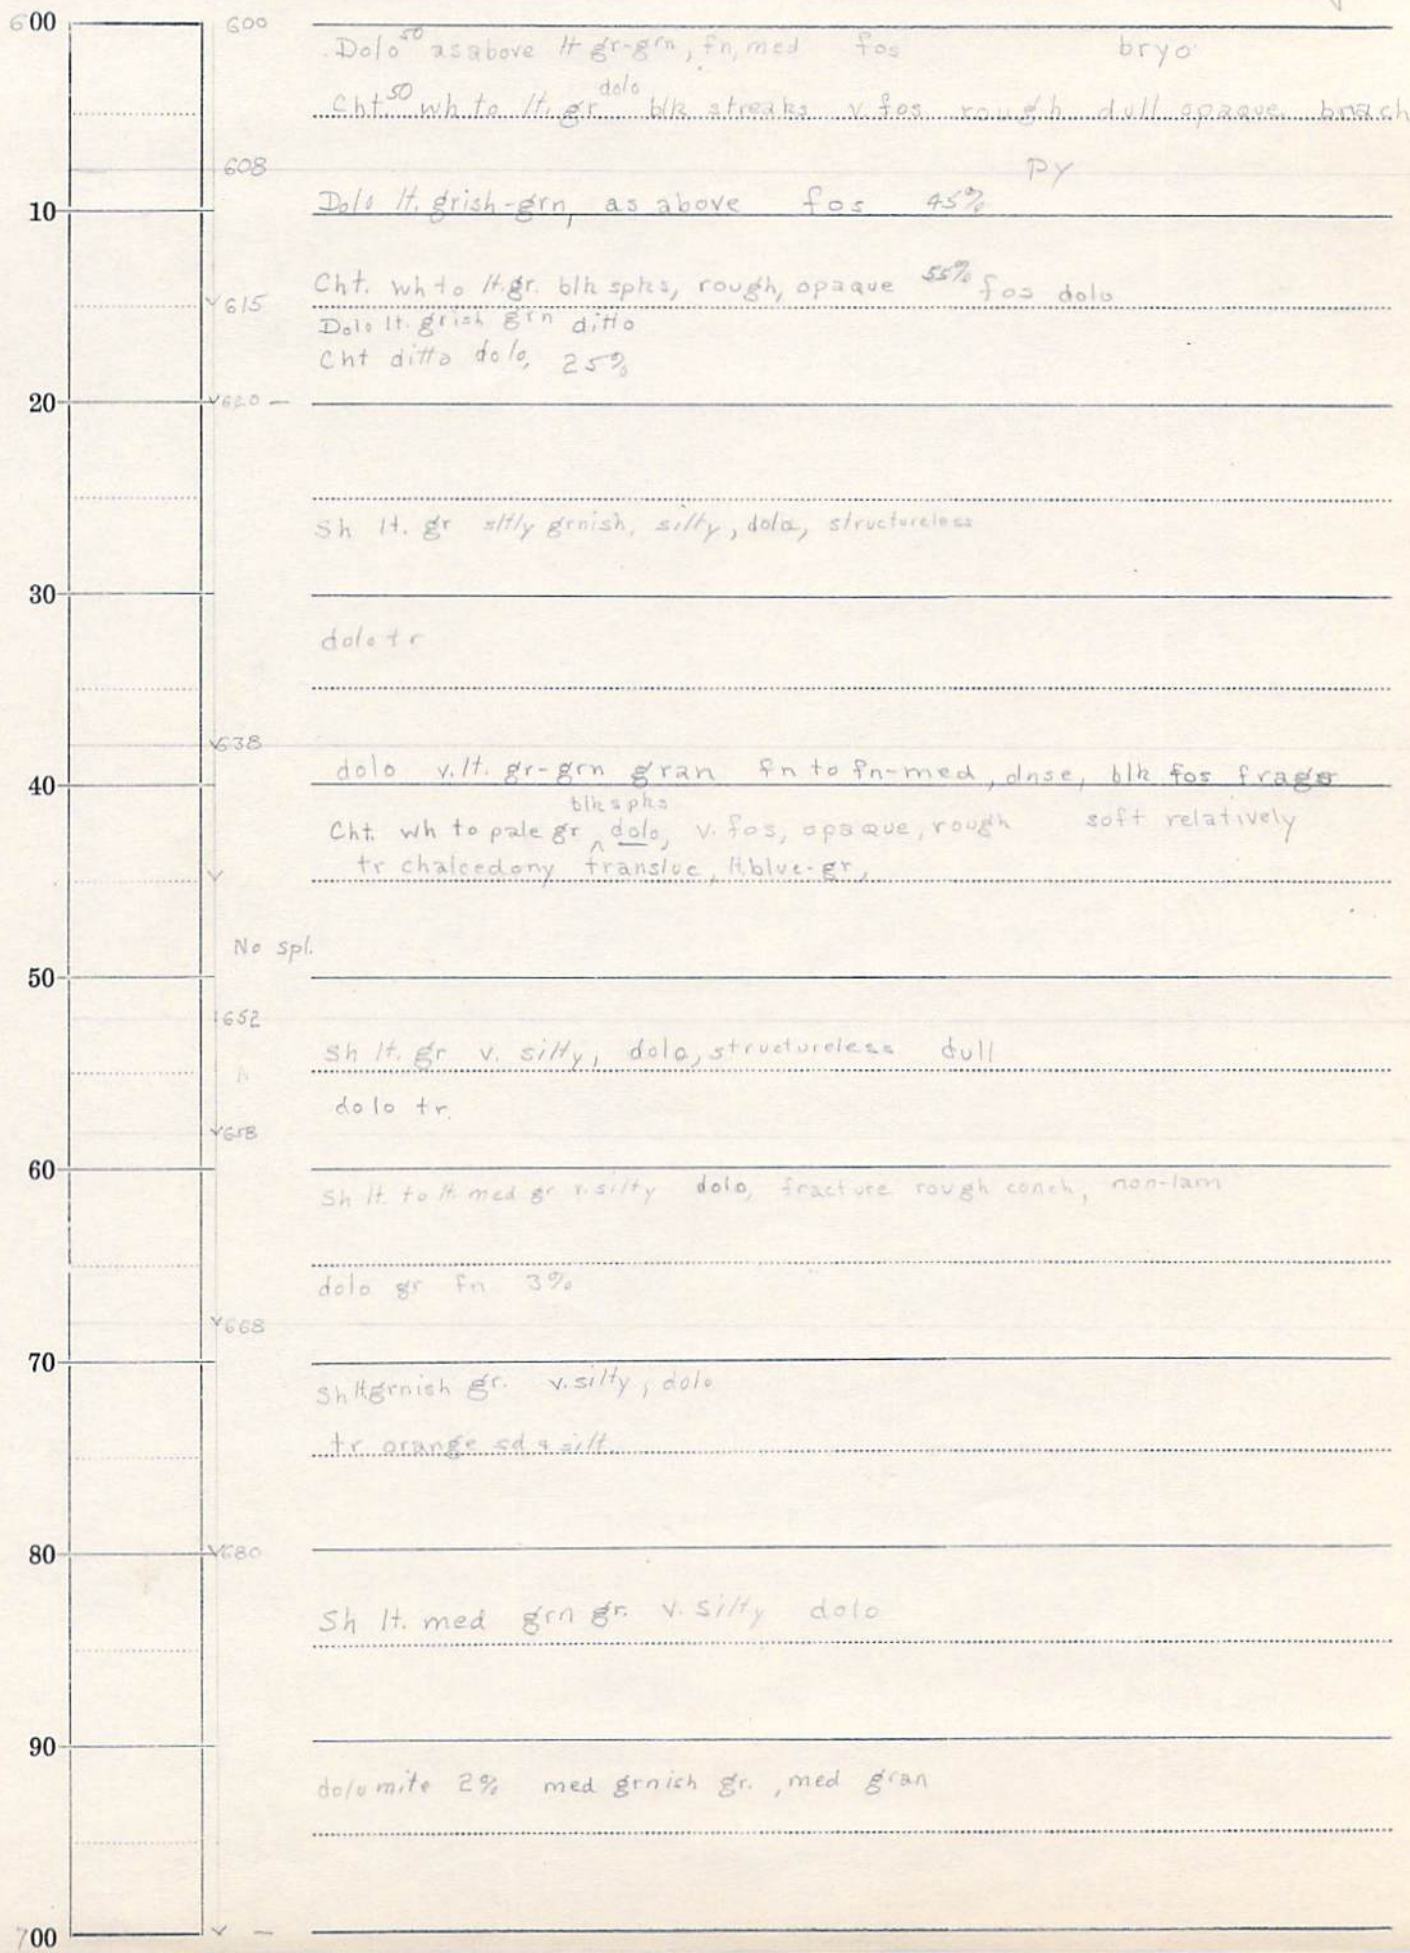 600 600
Dolo 50 as above lt gr-grn, fn, med fos bryo
dolo
Cht. 50 wh to lt. gr blk streaks v. fos rough dull opaque brach
608 py
10 Dolo lt. grish-grn, as above fos 45%
Cht. wh to lt. gr. blk spks, rough, opaque 55% fos dolo
615
Dolo lt. grish grn ditto
Cht ditto dolo, 25%
20 620 —
Sh lt. gr sltly grnish, silty, dolo, structureless
30
dolo tr
638
dolo v. lt. gr-grn gran fn to fn-med, dnse, blk fos frags
40
blk spks
Cht. wh to pale gr ^ dolo, v. fos, opaque, rough soft relatively
tr chalcedony transluc, lt blue-gr,
No spl.
50
652
Sh lt. gr v. silty, dolo, structureless dull
dolo tr.
658
60
Sh lt. to lt. med gr v. silty dolo, fracture rough conch, non-lam
dolo gr fn 3%
668
70
Sh lt grnish gr. v. silty, dolo
tr orange sd & silt
80 680
Sh lt. med grn gr. v. silty dolo
90
dolomite 2% med grnish gr., med gran
700 —